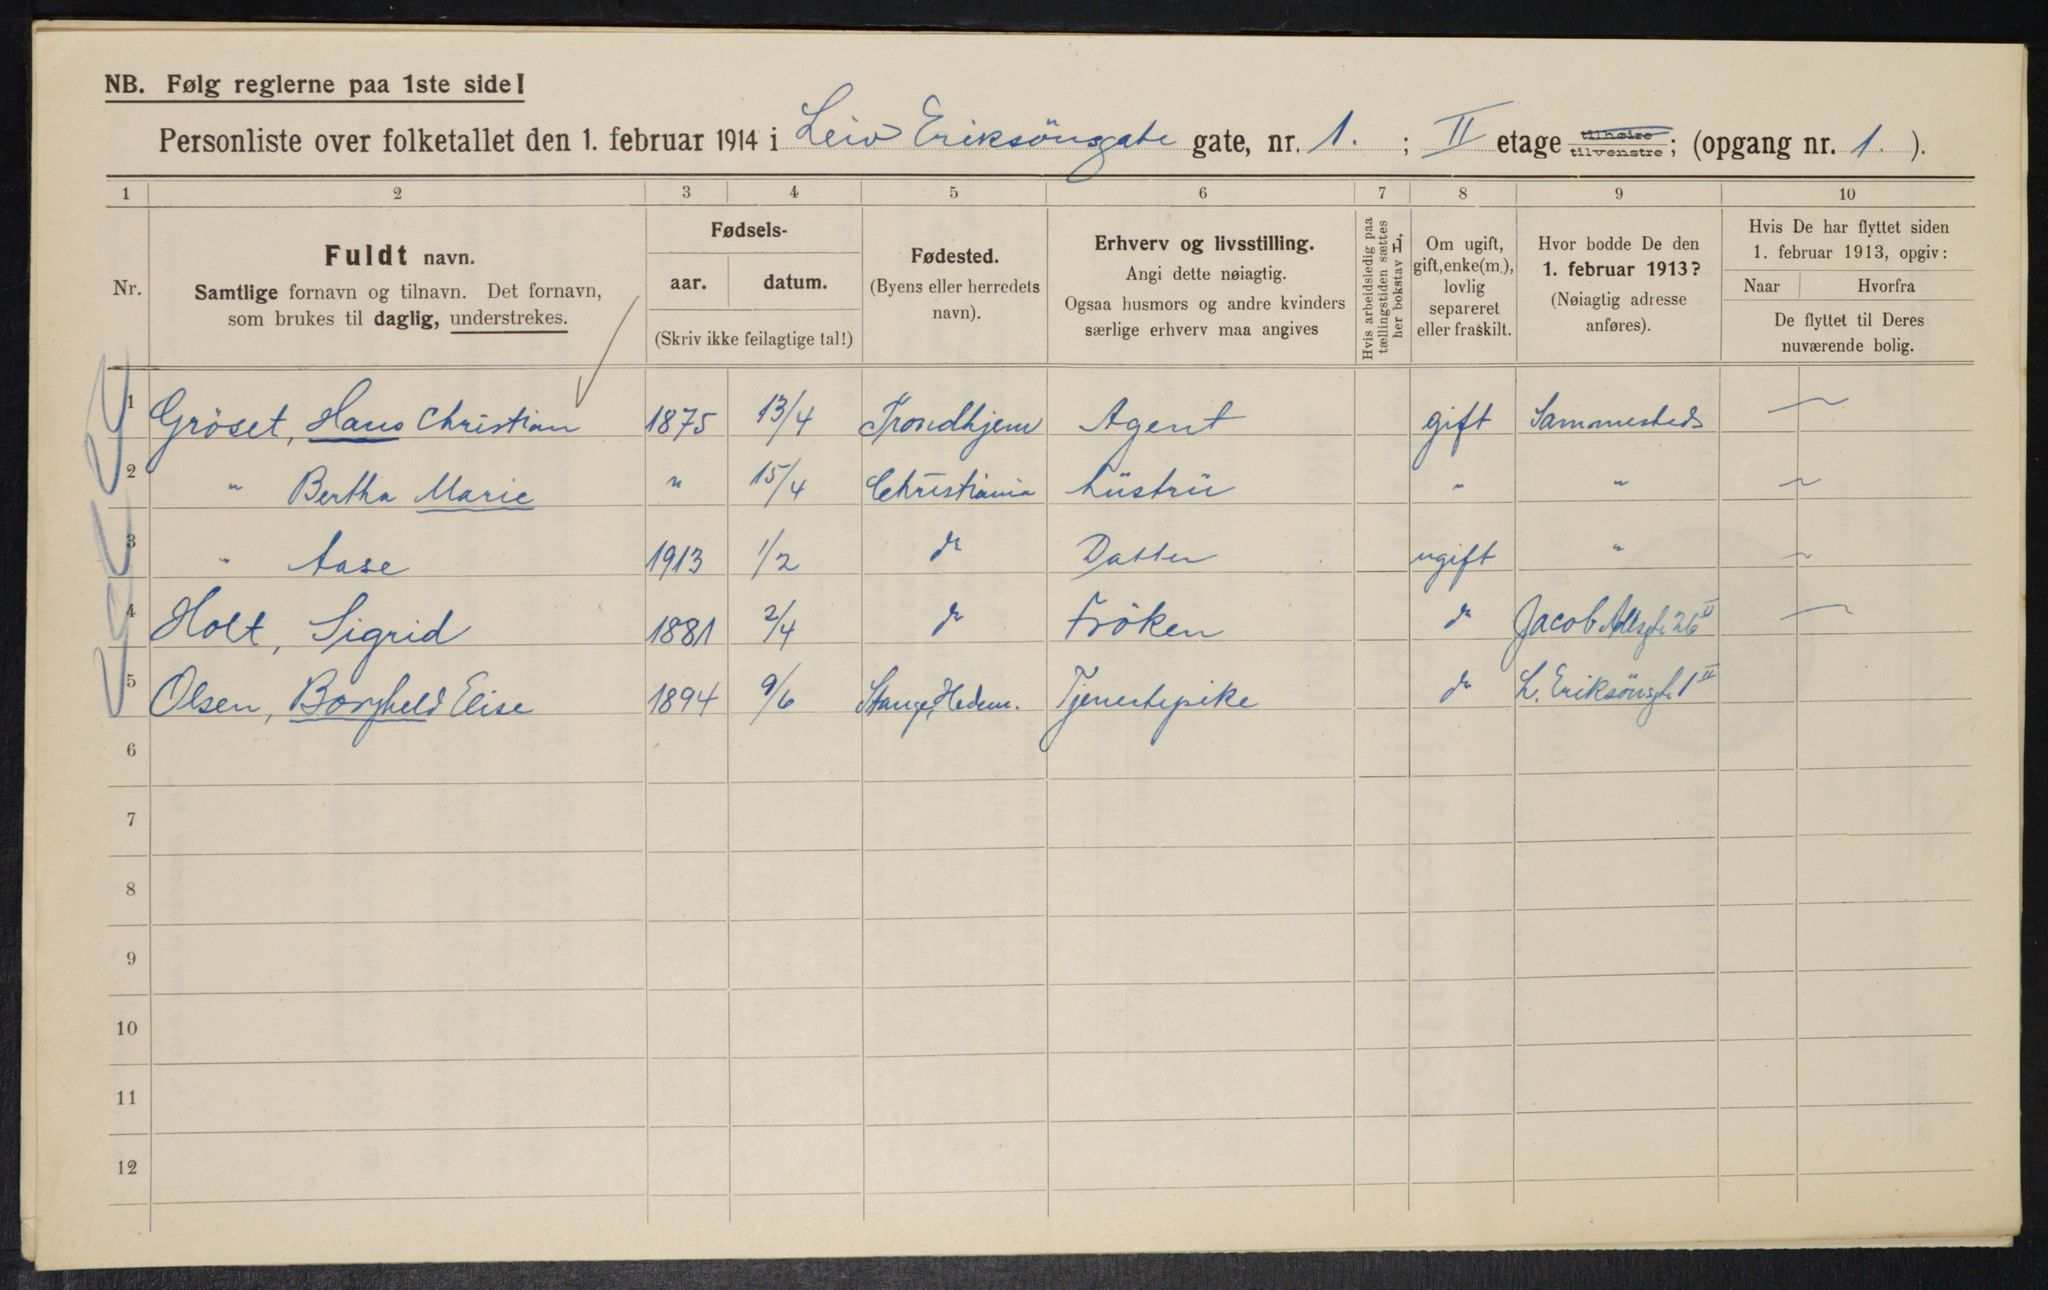 NB. Følg reglerne paa 1ste side!
Personliste over folketallet den 1. februar 1914 i Leiv Eriksönsgate gate, nr. 1. ; II etage tilhøire tilvenstre; (opgang nr. 1. ).
1 2 3 4 5 6 7 8 9 10
Nr.
Fuldt navn.
Samtlige fornavn og tilnavn. Det fornavn,
som brukes til daglig, understrekes.
Fødsels-
aar. datum.
(Skriv ikke feilagtige tal!)
Fødested.
(Byens eller herredets
navn).
Erhverv og livsstilling.
Angi dette nøiagtig.
Ogsaa husmors og andre kvinders
særlige erhverv maa angives
Hvis arbeidsledig paa
tællingstiden sættes
her bokstav L,
Om ugift,
gift, enke(m.),
lovlig
separeret
eller fraskilt.
Hvor bodde De den
1. februar 1913?
(Nøiagtig adresse
anføres).
Hvis De har flyttet siden
1. februar 1913, opgiv:
Naar Hvorfra
De flyttet til Deres
nuværende bolig.
1 Gröset, Hans Christian 1875 13/4 Trondhjem Agent gift Sammesteds —
2 " Bertha Marie " 15/4 Christiania hüstrü " " ~
3 " Aase 1913 1/2 do Datter ugift " ~
4 Holt, Sigrid 1881 2/4 do Fröken do Jacob Allsgt. 26 II —
5 Olsen, Borghild Elise 1894 9/6 Stange, Hedem. Tjenestepike do L. Eriksönsgt. 1 II
6
7
8
9
10
11
12